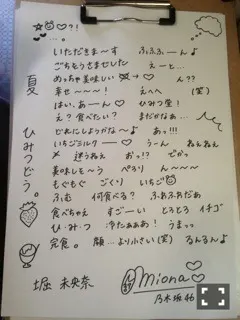 ☆ ♡?!
♥〜…。
いただきま〜す ふふふ…ん♪
ごちそうさまでした えーと…
めっちゃ美味しい → ♡ ん??
幸せ〜〜〜! えへへ (笑)
はい、あーん♡ ひみつ堂!
え?食べたい? まだかなぁ…
どれにしようかな〜♪ あっ!!!
いちごミルクー♡ うーん ねぇねぇ
迷うねぇ おっ!? でかっ
美味しそ〜う ぺろり ん〜〜〜
もぐもぐ ごくり いちご
ふむ 何食べる? ふわふわだぁ
食べちゃえ すご〜い とろとろ イチゴ
ひ・み・つ 冷たぁぁぁい! うまっっ
完食。 顔…より小さい(笑) るんるん♪
夏 ひみつどう。
堀 未央奈
miona♡
乃木坂46